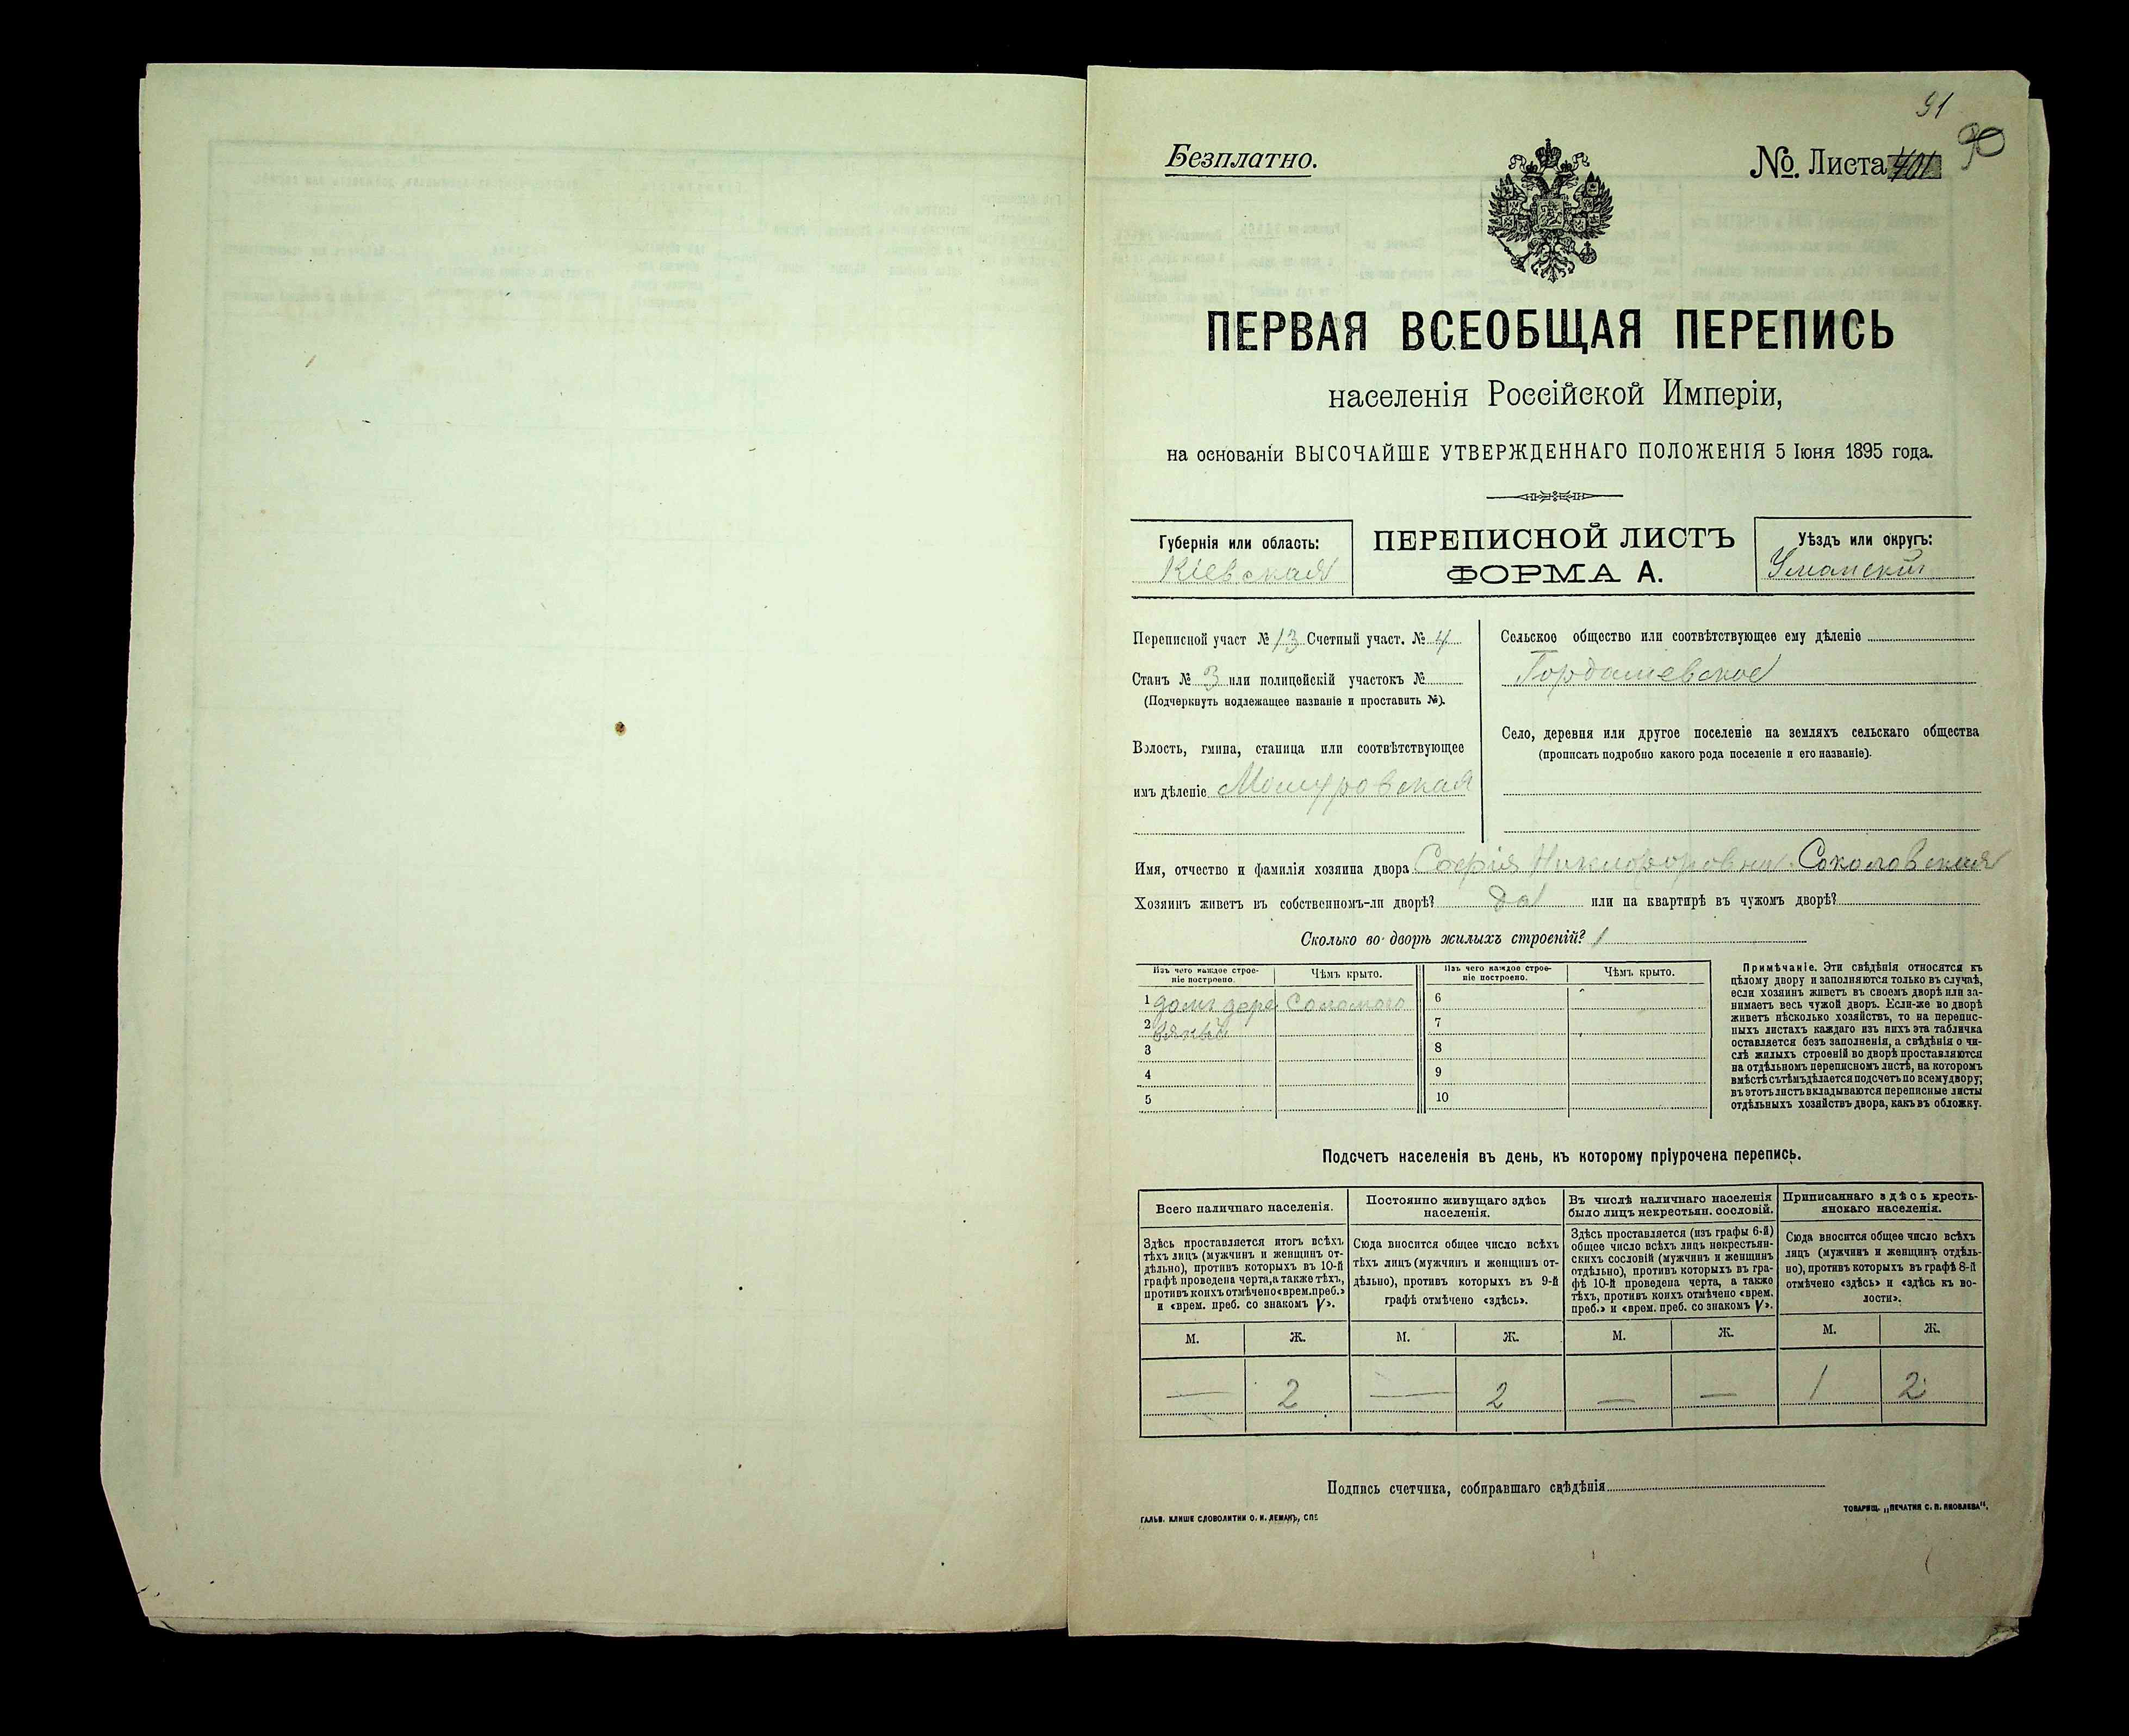 91
90
Безплатно.
№. Листа 401
ПЕРВАЯ ВСЕОБЩАЯ ПЕРЕПИСЬ
населенія Россійской Имперіи,
на основаніи ВЫСОЧАЙШЕ УТВЕРЖДЕННАГО ПОЛОЖЕНІЯ 5 Іюня 1895 года.
Губернія или область:
Кіевская
ПЕРЕПИСНОЙ ЛИСТЪ
ФОРМА А.
Уѣздъ или округъ:
Уманскій
Переписной участ № 13 Счетный участ. № 4
Станъ № 3 или полицейскій участокъ №
(Подчеркнуть подлежащее названіе и проставить №).
Волость, гмина, станица или соотвѣтствующее
имъ дѣленіе Мошуровская
Сельское общество или соотвѣтствующее ему дѣленіе
Гордашевское
Село, деревня или другое поселеніе на земляхъ сельскаго общества
(прописать подробно какого рода поселеніе и его названіе).
Имя, отчество и фамилія хозяина двора Софія Никифоровна Соколовская
Хозяинъ живетъ въ собственномъ-ли дворѣ? Да или на квартирѣ въ чужомъ дворѣ?
Сколько во дворѣ жилыхъ строеній? 1
Изъ чего каждое строе-
ніе построено.
Чѣмъ крыто.
Изъ чего каждое строе-
ніе построено.
Чѣмъ крыто.
1 домъ дере Соломою
2 вяный
3
4
5
6
7
8
9
10
Примѣчаніе. Эти свѣдѣнія относятся къ
цѣлому двору и заполняются только въ случаѣ,
если хозяинъ живетъ въ своемъ дворѣ или за-
нимаетъ весь чужой дворъ. Если-же во дворѣ
живетъ нѣсколько хозяйствъ, то на перепис-
ныхъ листахъ каждаго изъ нихъ эта табличка
оставляется безъ заполненія, а свѣдѣнія о чи-
слѣ жилыхъ строеній во дворѣ проставляются
на отдѣльномъ переписномъ листѣ, на которомъ
вмѣстѣ съ тѣмъ дѣлается подсчетъ по всему двору;
въ этотъ листъ вкладываются переписные листы
отдѣльныхъ хозяйствъ двора, какъ въ обложку.
Подсчетъ населенія въ день, къ которому пріурочена перепись.
Всего наличнаго населенія.
Здѣсь проставляется итогъ всѣхъ
тѣхъ лицъ (мужчинъ и женщинъ от-
дѣльно), противъ которыхъ въ 10-й
графѣ проведена черта, а также тѣхъ,
противъ коихъ отмѣчено «врем. преб.»
и «врем. преб. со знакомъ V».
Постоянно живущаго здѣсь
населенія.
Сюда вносится общее число всѣхъ
тѣхъ лицъ (мужчинъ и женщинъ от-
дѣльно), противъ которыхъ въ 9-й
графѣ отмѣчено «здѣсь».
Въ числѣ наличнаго населенія
было лицъ некрестьян. сословій.
Здѣсь проставляется (изъ графы 6-й)
общее число всѣхъ лицъ некрестьян-
скихъ сословій (мужчинъ и женщинъ
отдѣльно), противъ которыхъ въ гра-
фѣ 10-й проведена черта, а также
тѣхъ, противъ коихъ отмѣчено «врем.
преб.» и «врем. преб. со знакомъ V».
Приписаннаго здѣсь кресть-
янскаго населенія.
Сюда вносится общее число всѣхъ
лицъ (мужчинъ и женщинъ отдѣль-
но), противъ которыхъ въ графѣ 8-й
отмѣчено «здѣсь» и «здѣсь къ во-
лости».
М. Ж. М. Ж. М. Ж. М. Ж.
— 2 — 2 — — 1 2
Подпись счетчика, собиравшаго свѣдѣнія
ГАЛЬВ. КЛИШЕ СЛОВОЛИТНИ О. И. ЛЕМАНЪ, СПБ
ТОВАРИЩ. „ПЕЧАТНЯ С. П. ЯКОВЛЕВА“.